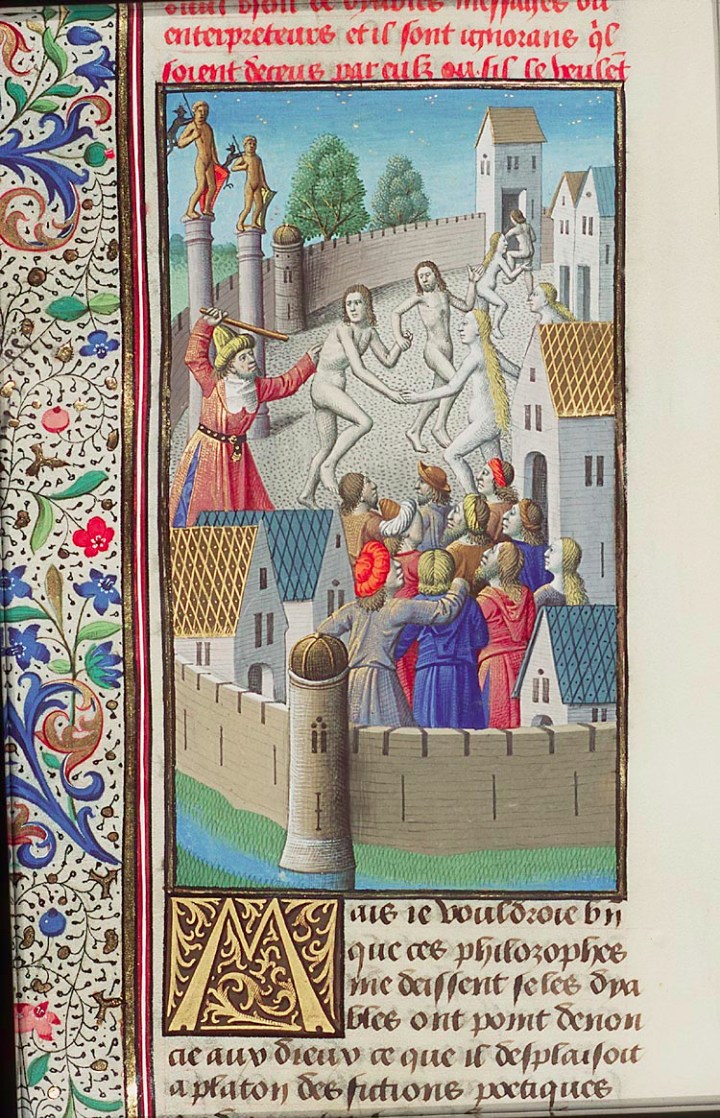 de dyables messages ou
enterpreteurs et il sont ignorans q̃l
soient deceus par eulz ou sil le veulēt
Mais ie vouldroie bñ
que ces philozophes
me deissent se les dya
bles ont point denon
cie aux dieux ce que il desplaisoit
a platon des fictions poetiques